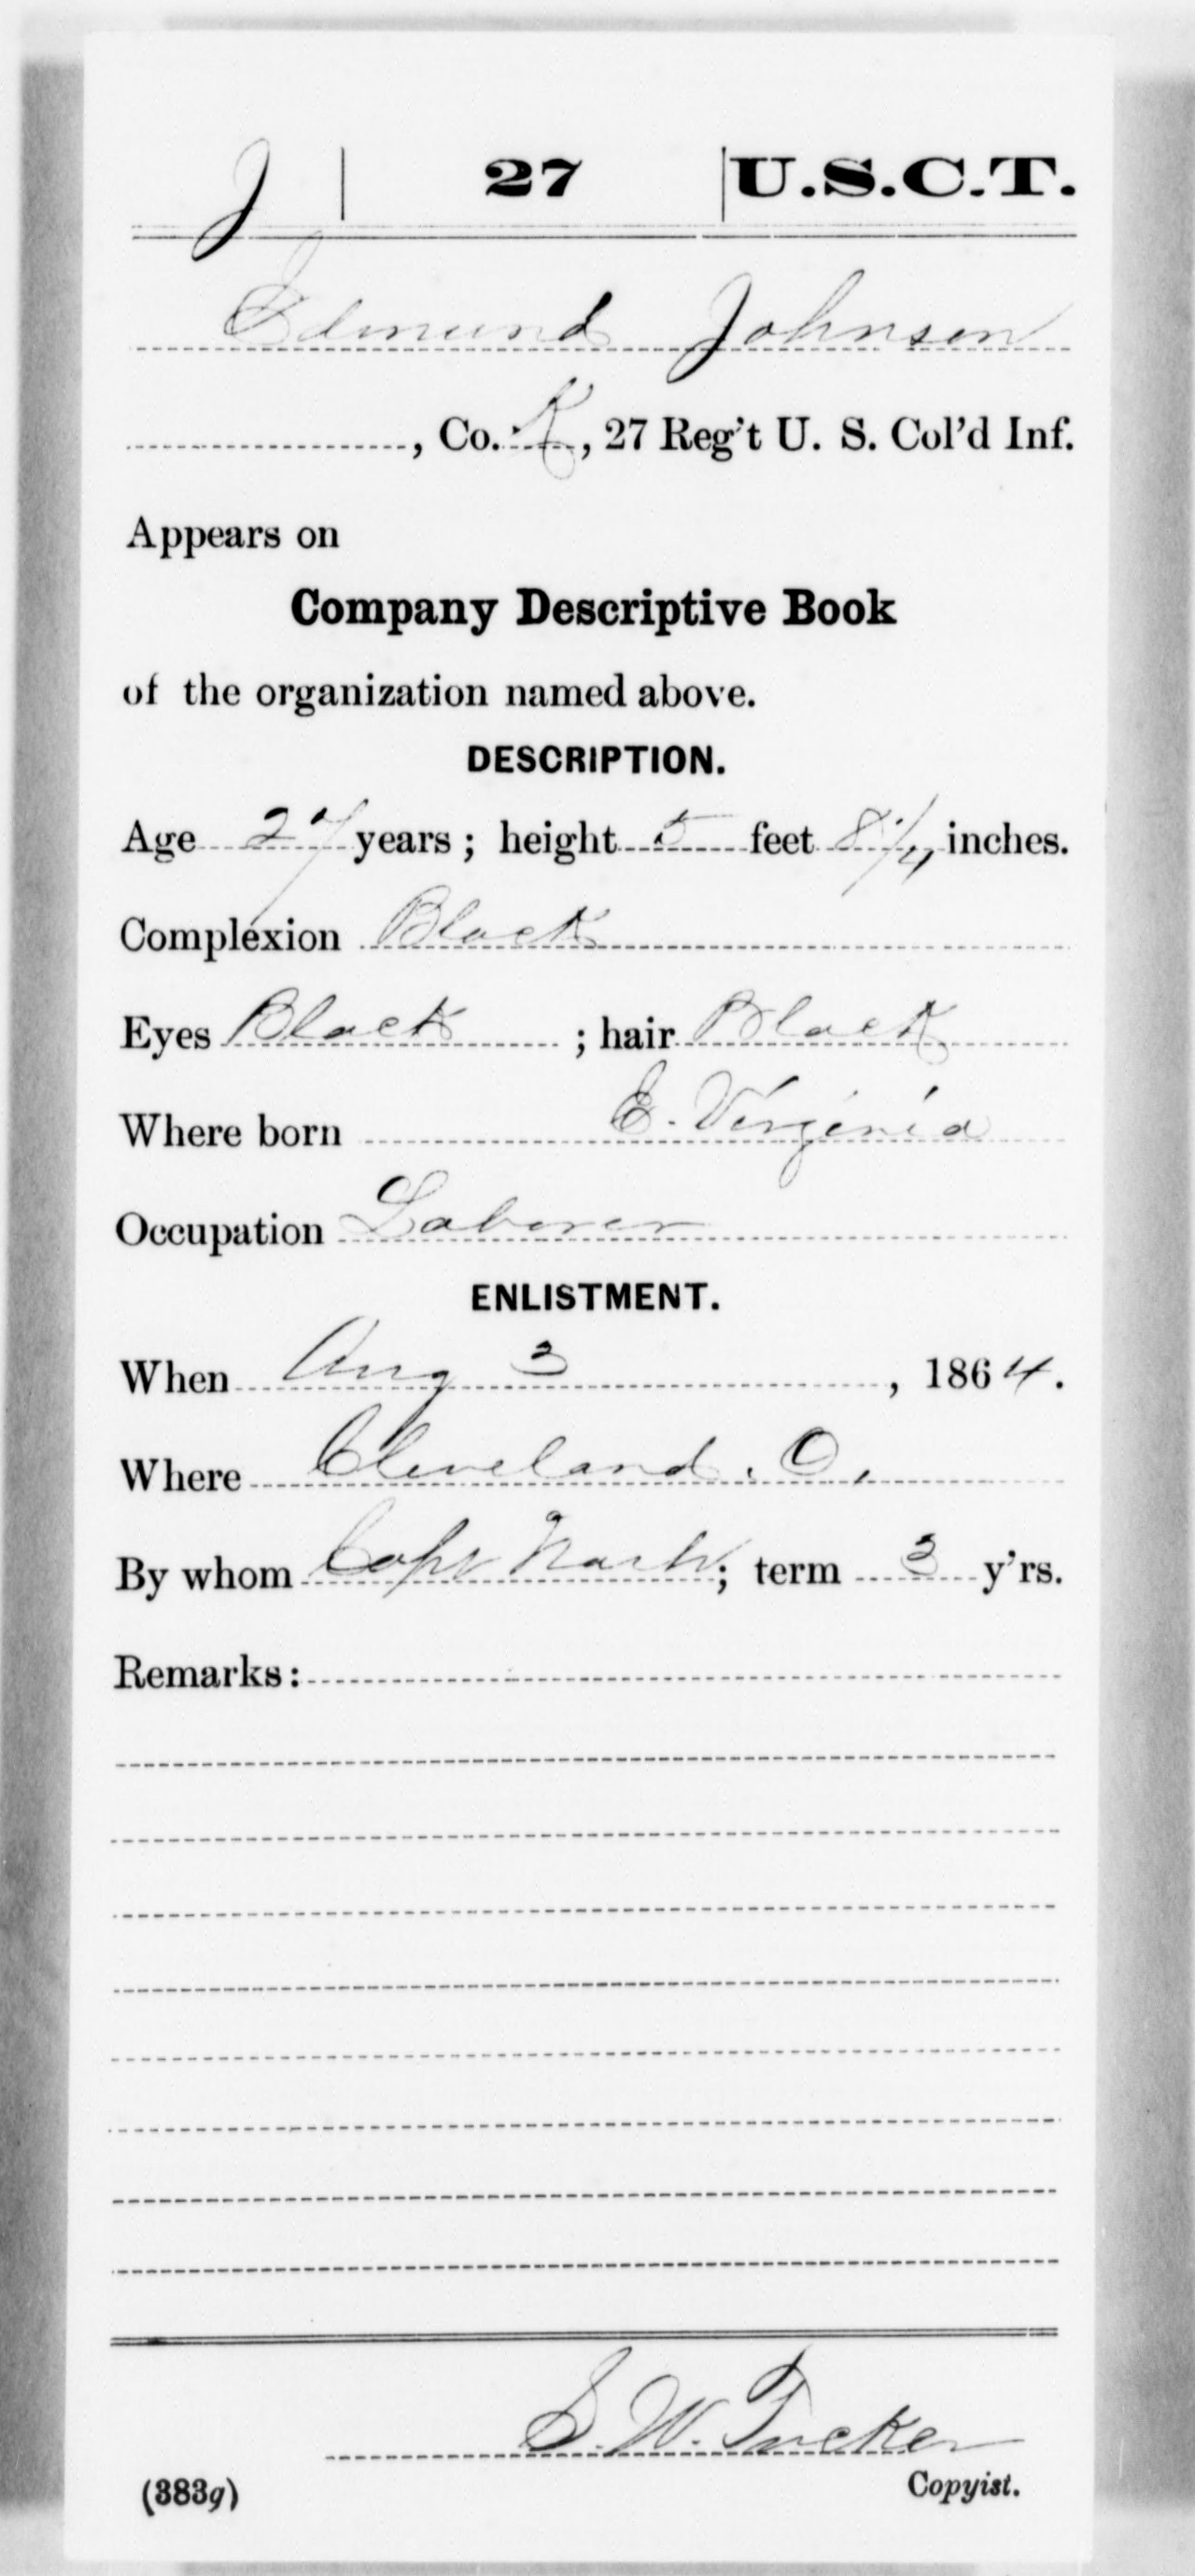 J | 27 | U.S.C.T.
Edmund Johnson
, Co. K, 27 Reg't U. S. Col'd Inf.
Appears on
Company Descriptive Book
of the organization named above.
DESCRIPTION.
Age 27 years; height 5 feet 8 1/4 inches.
Complexion Black
Eyes Black ; hair Black
Where born E. Virginia
Occupation Laborer
ENLISTMENT.
When Aug 3, 1864.
Where Cleveland. O.
By whom Capt ; term 3 y'rs.
Remarks:
S. W. Tucker
Copyist.
(383g)